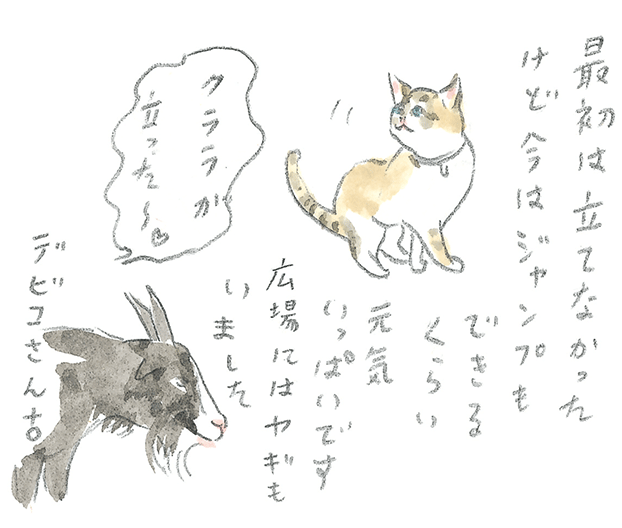 最初は立てなかった
けど今はジャンプも
できる
くらい
元気
いっぱいです
クララが
立った〜♡
広場にはヤギも
いました
デビコさんす。